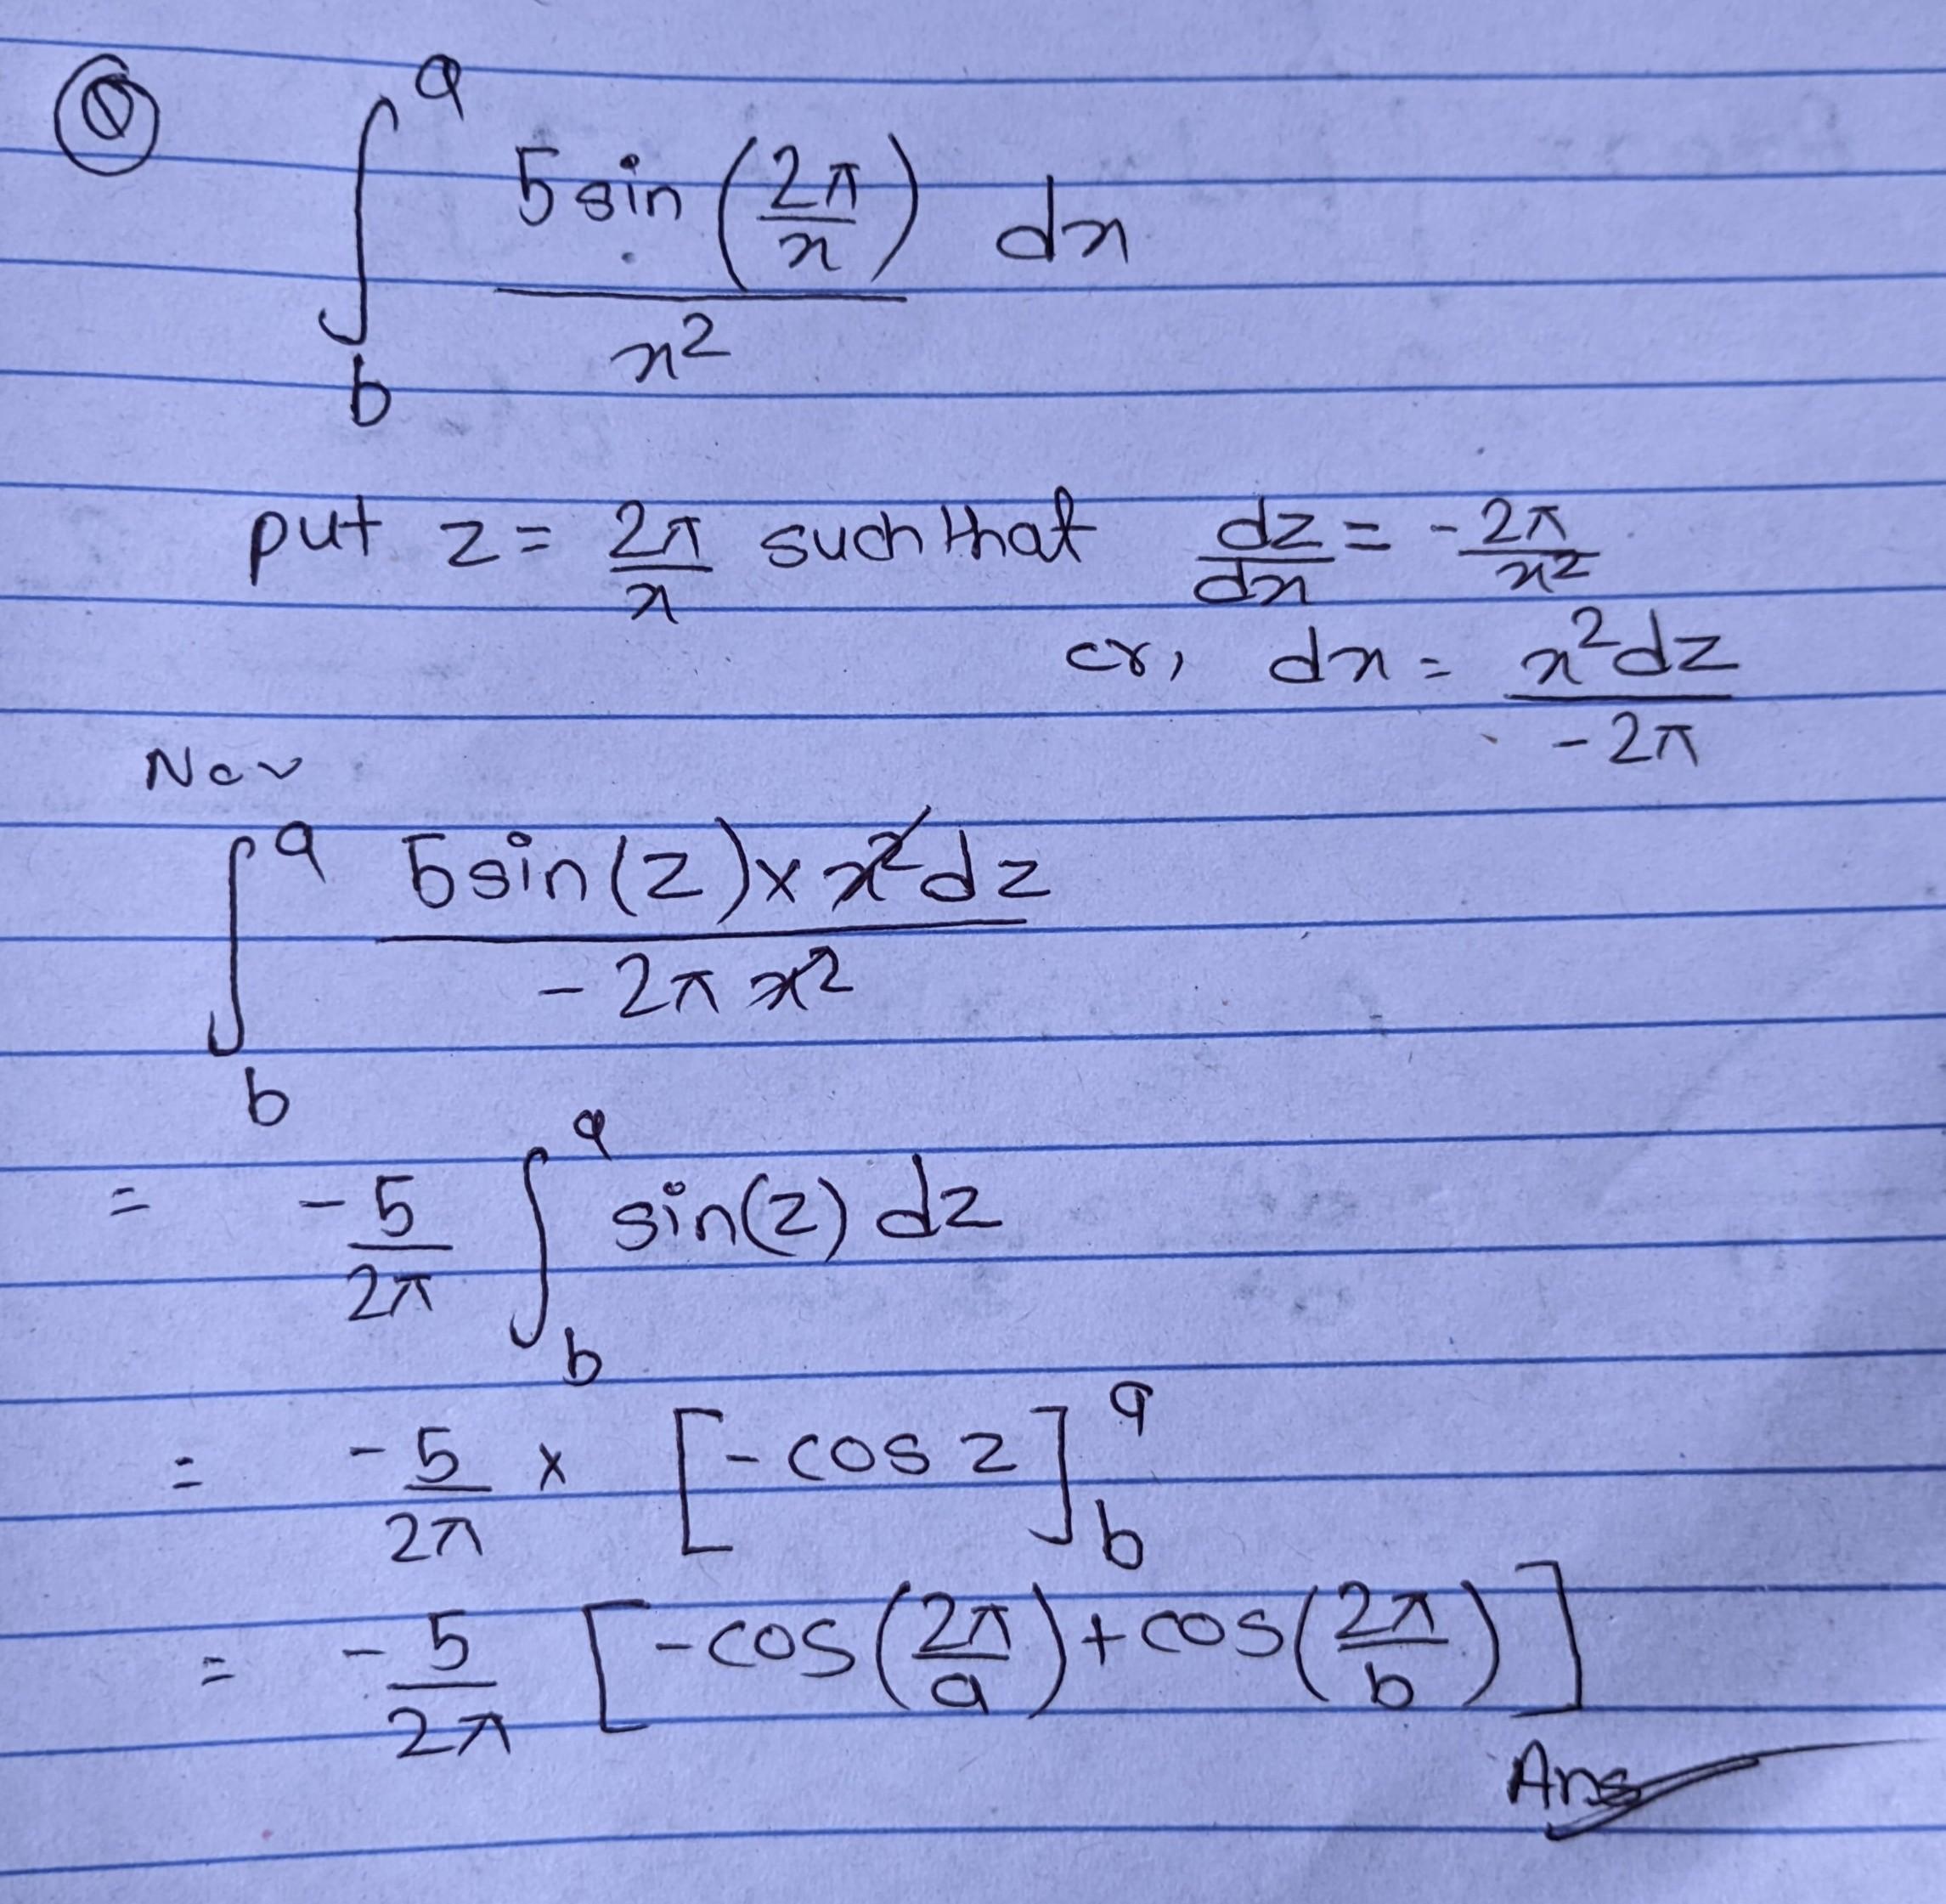 Q ∫_b^a 5sin(2π/x)/x² dx
put z = 2π/x such that dz/dx = -2π/x²
or, dx = x²dz/-2π
Now
∫_b^a 5sin(z)×x²dz/-2πx²
= -5/2π ∫_b^a sin(z) dz
= -5/2π × [-cos z]_b^a
= -5/2π [-cos(2π/a)+cos(2π/b)]
Ans